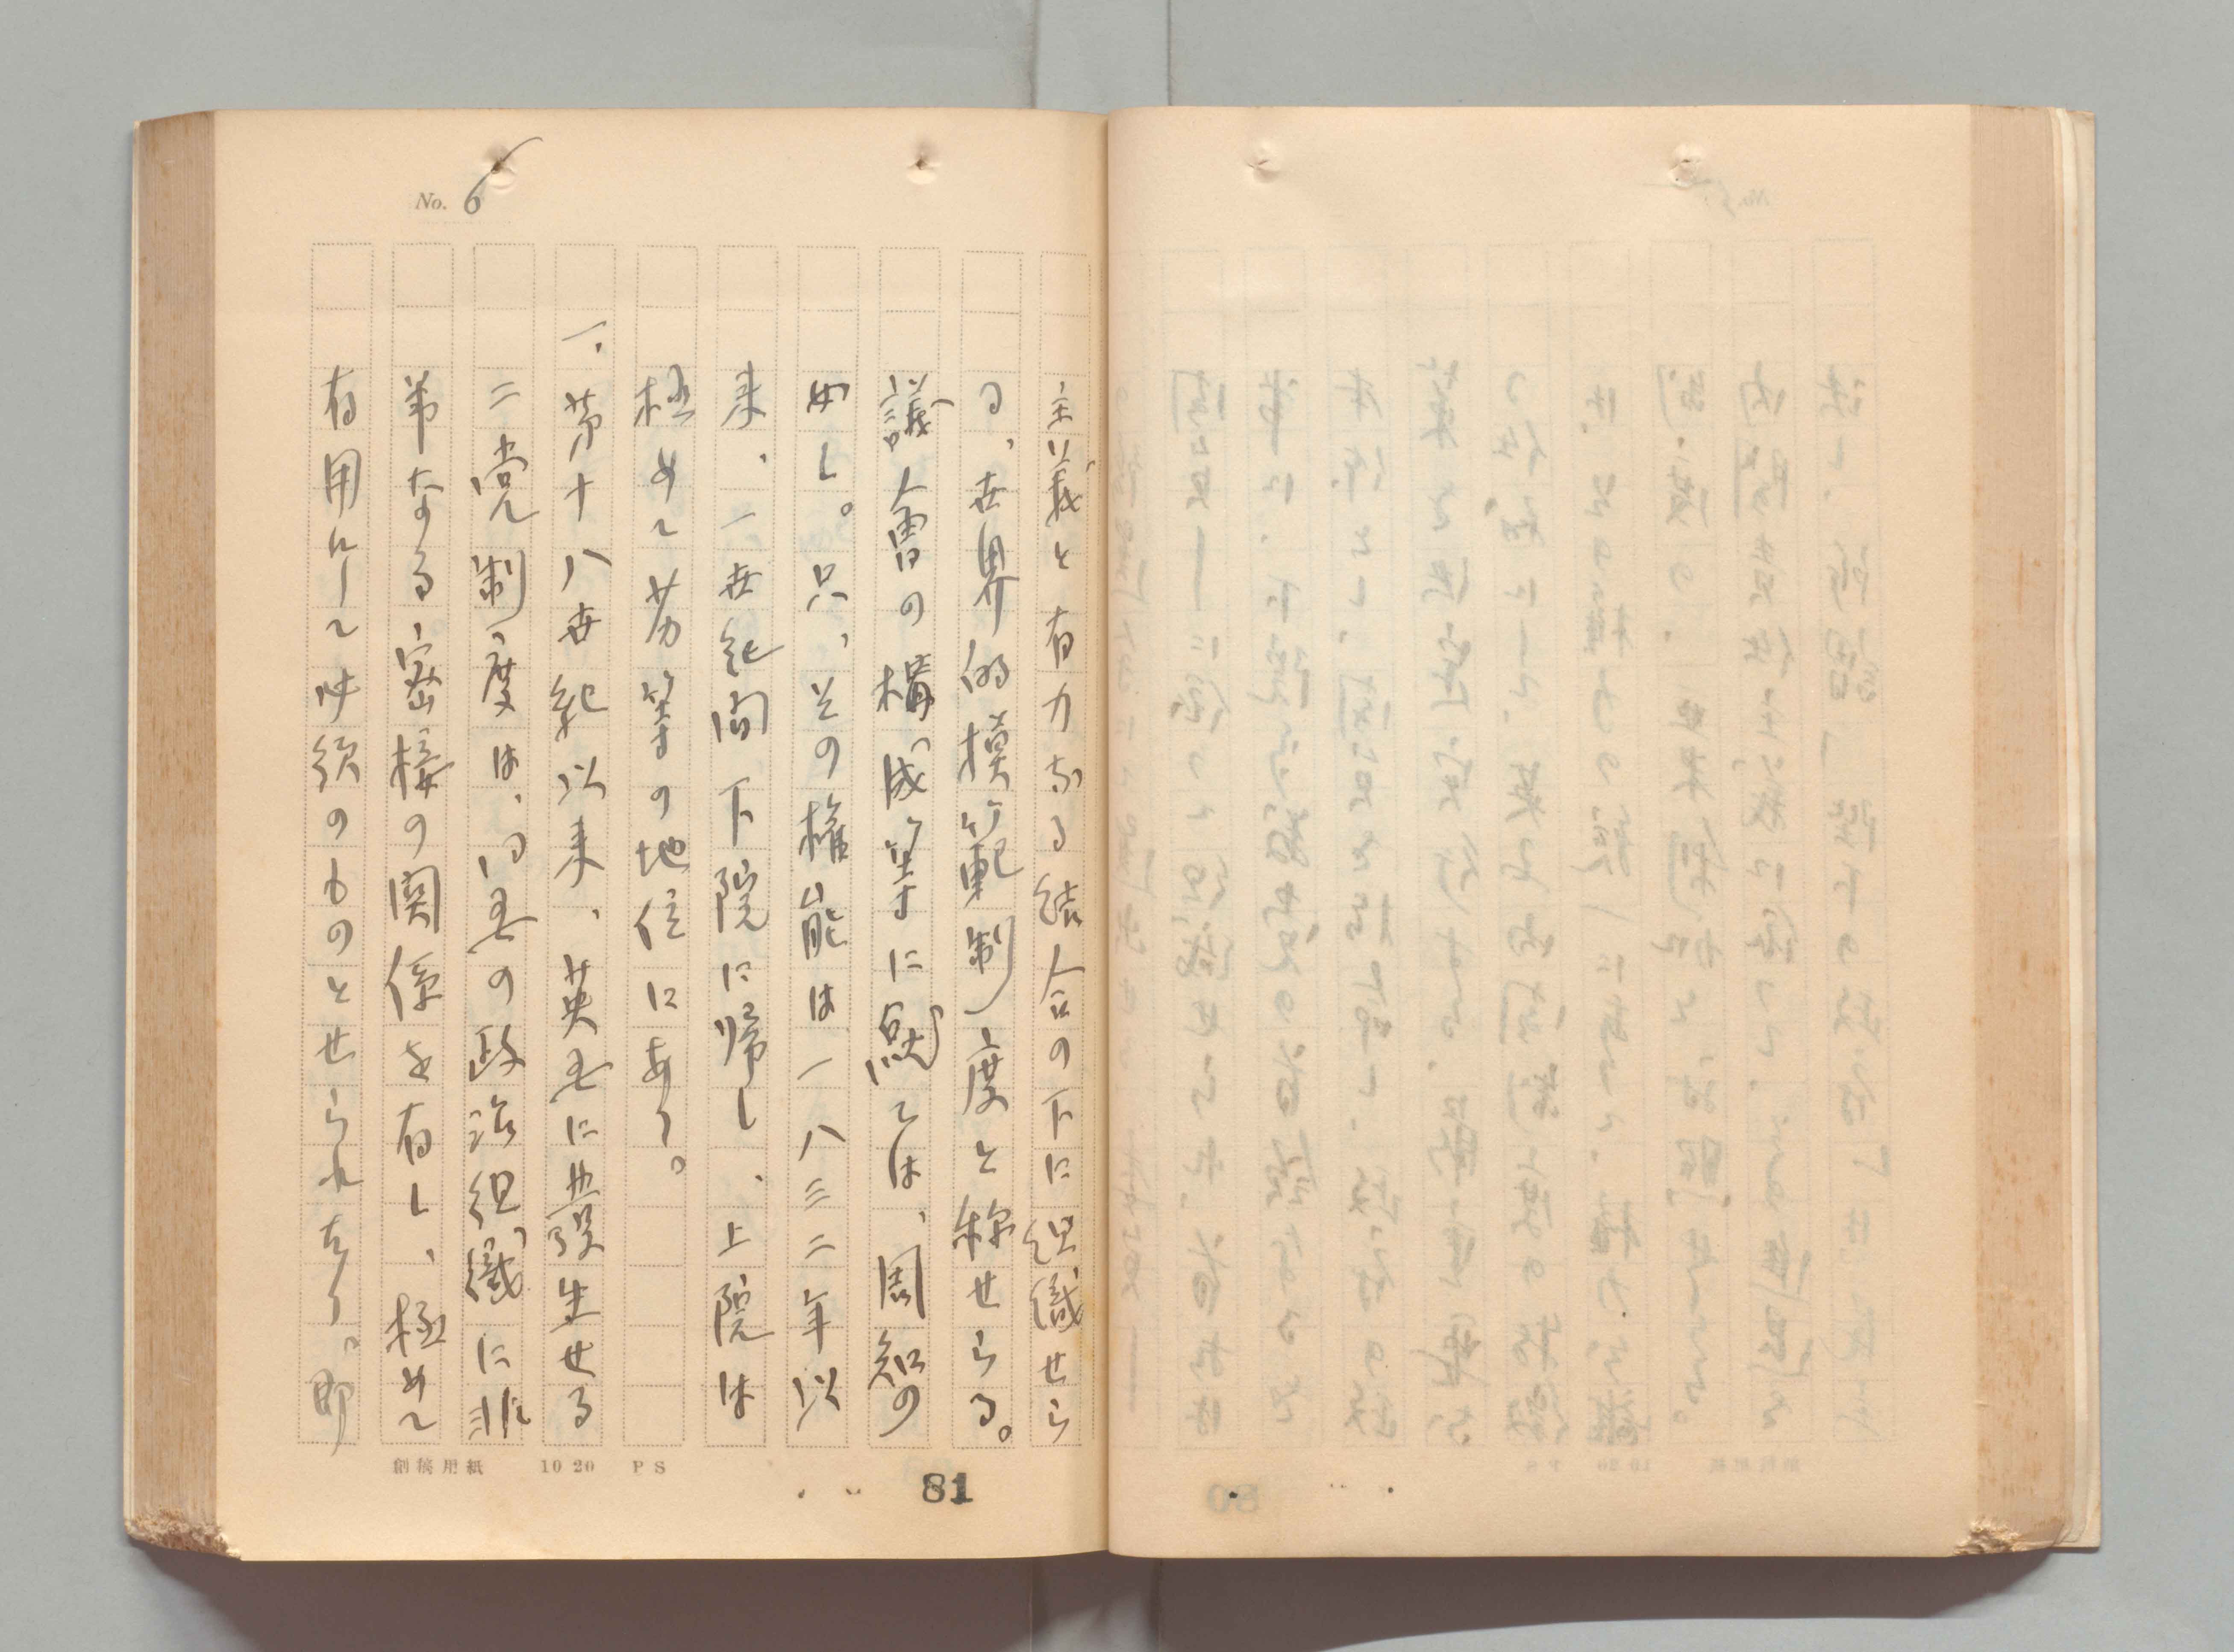 No. 6
主義と有力なる結合の下に組織せら
る、世界的模範制度と称せらる。
議会の構成等に就ては、周知の
如し。只、その権能は一八三二年以
来、一世紀間下院に帰し、上院は
極めて劣等の地位にあり。
一、第十八世紀以来、英国に発生せる
二党制度は、同国の政治組織に非
常なる密接の関係を有し、極めて
有用にして必須のものとせられたり。即
創稿用紙 10 20 PS
81